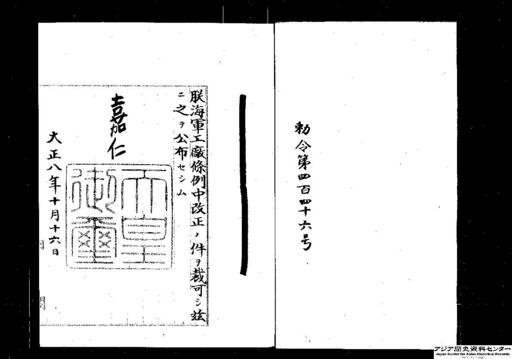 勅令第四百四十六号
朕海軍工廠條例中改正ノ件ヲ裁可シ茲
ニ之ヲ公布セシム
嘉仁
天皇
御璽
大正八年十月十六日
アジア歴史資料センター
Japan Center for Asian Historical Records